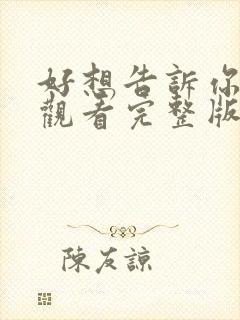 好想告訴你
觀看完整版
陳友諒